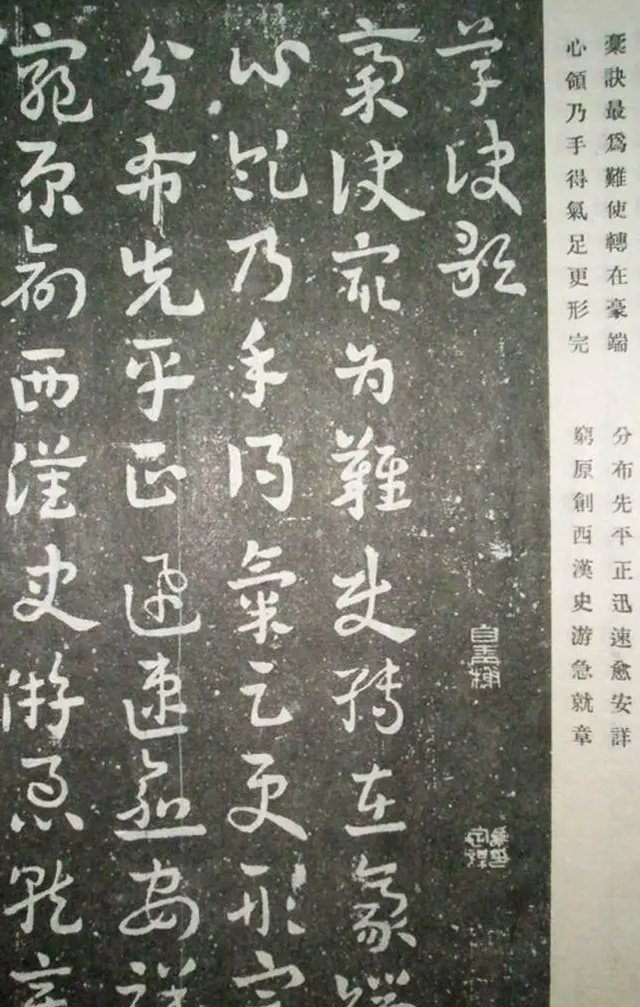 稾訣最爲難使轉在豪端
心領乃手得氣足更形完
分布先平正迅速愈安詳
窮原創西漢史游急就章
草訣歌
稾訣最為難使轉在豪端
心領乃手得氣足更形完
分布先平正迅速愈安詳
窮原創西漢史游急就章